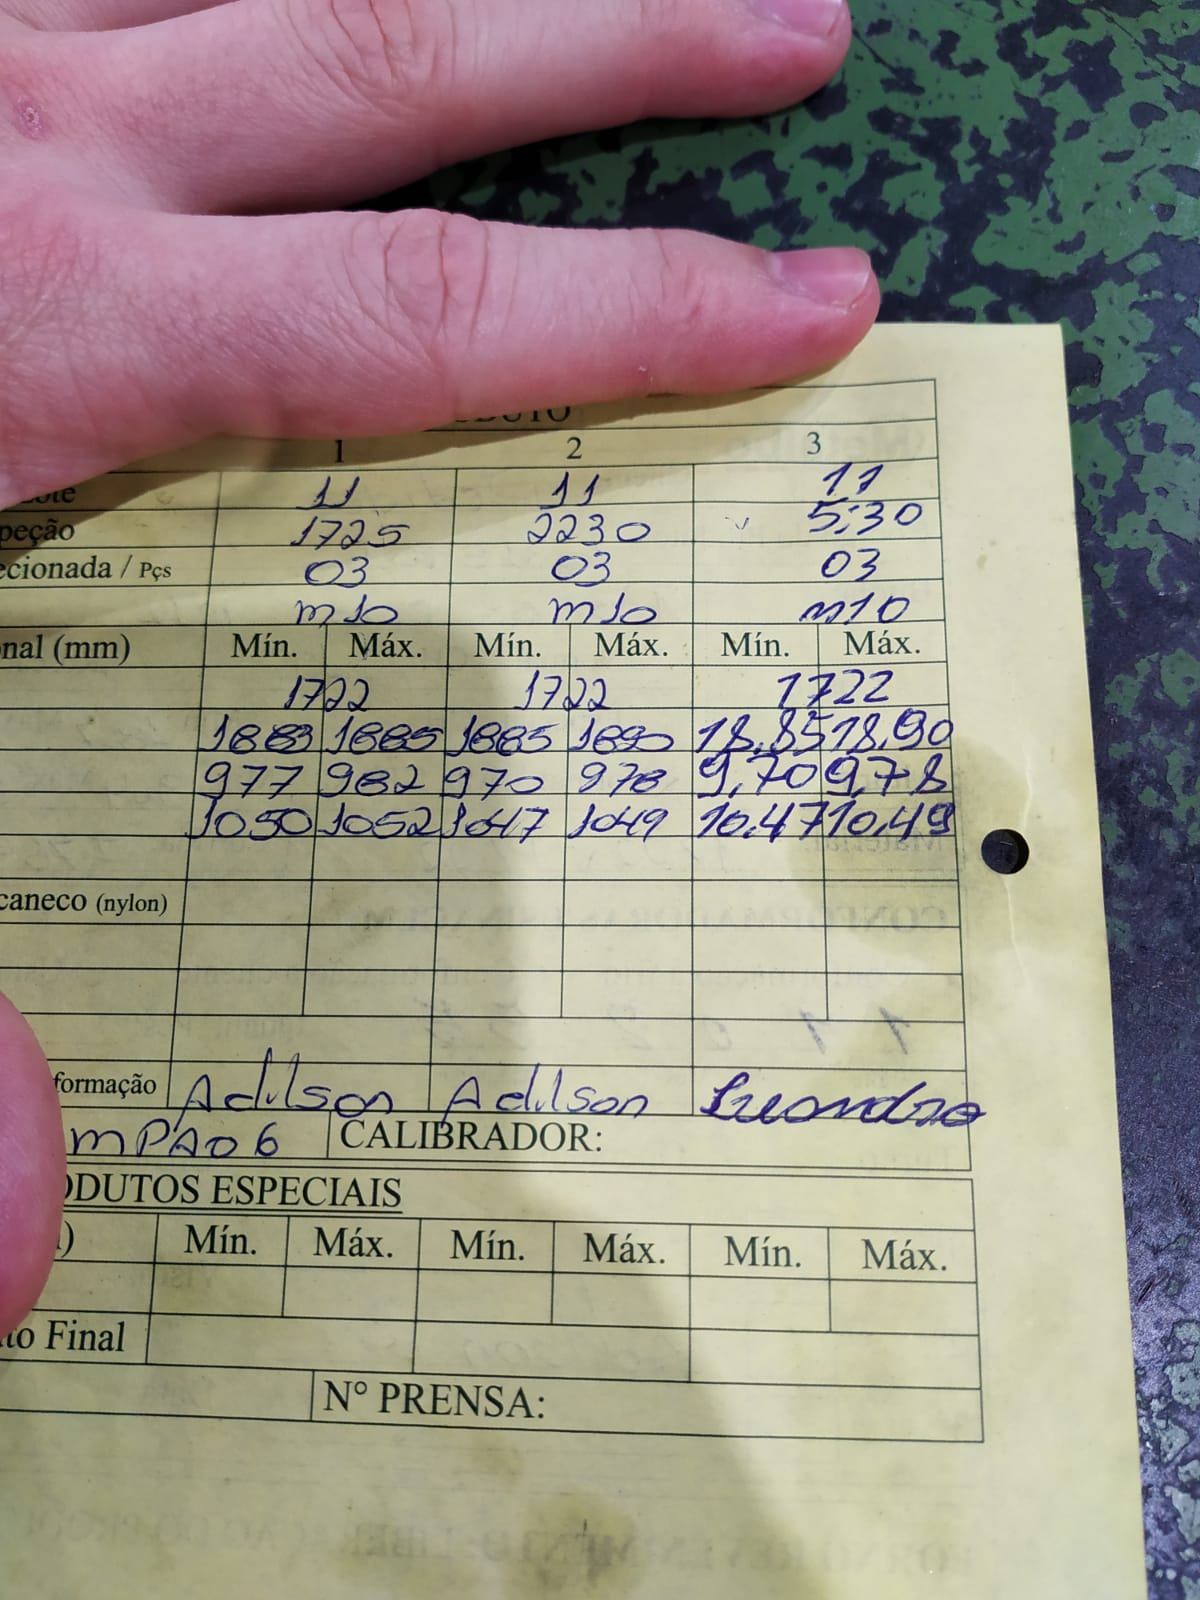 1 2 3
11 11 11
peção 1725 2230 5:30
ecionada / Pçs 03 03 03
m10 m10 m10
nal (mm) Mín. Máx. Mín. Máx. Mín. Máx.
1722 1722 1722
1883 1885 1885 1890 18,85 18,90
977 982 970 978 9,70 9,78
1050 1052 1047 1049 10,47 10,49
caneco (nylon)
formação Adilson Adilson Leandro
mPA06 CALIBRADOR:
ODUTOS ESPECIAIS
) Mín. Máx. Mín. Máx. Mín. Máx.
to Final
N° PRENSA: